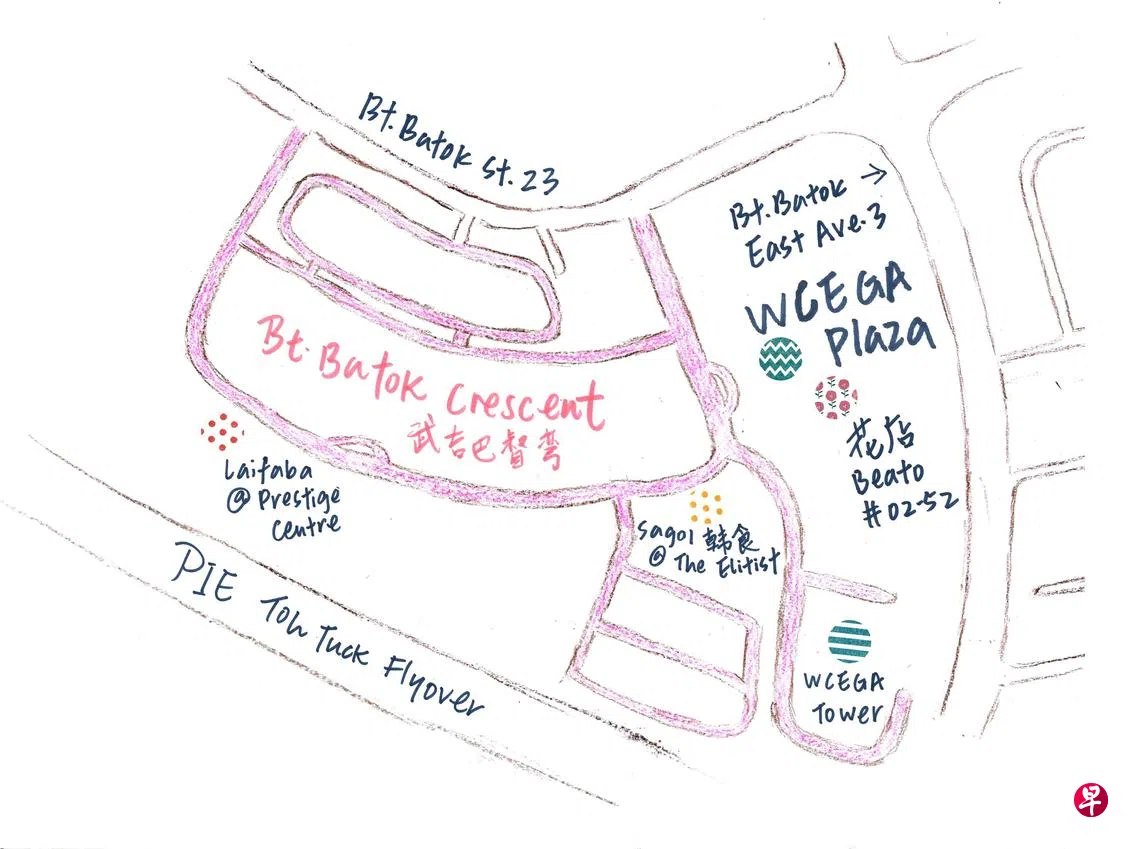 Bt. Batok St. 23
Bt. Batok →
East Ave. 3
WCEGA
Plaza
Bt. Batok Crescent
武吉巴督弯
花店
Beato
#02-52
Laifaba
@ Prestige
Centre
Sagol 韩食
@ The Elitist
PIE Toh Tuck Flyover
WCEGA
Tower
早